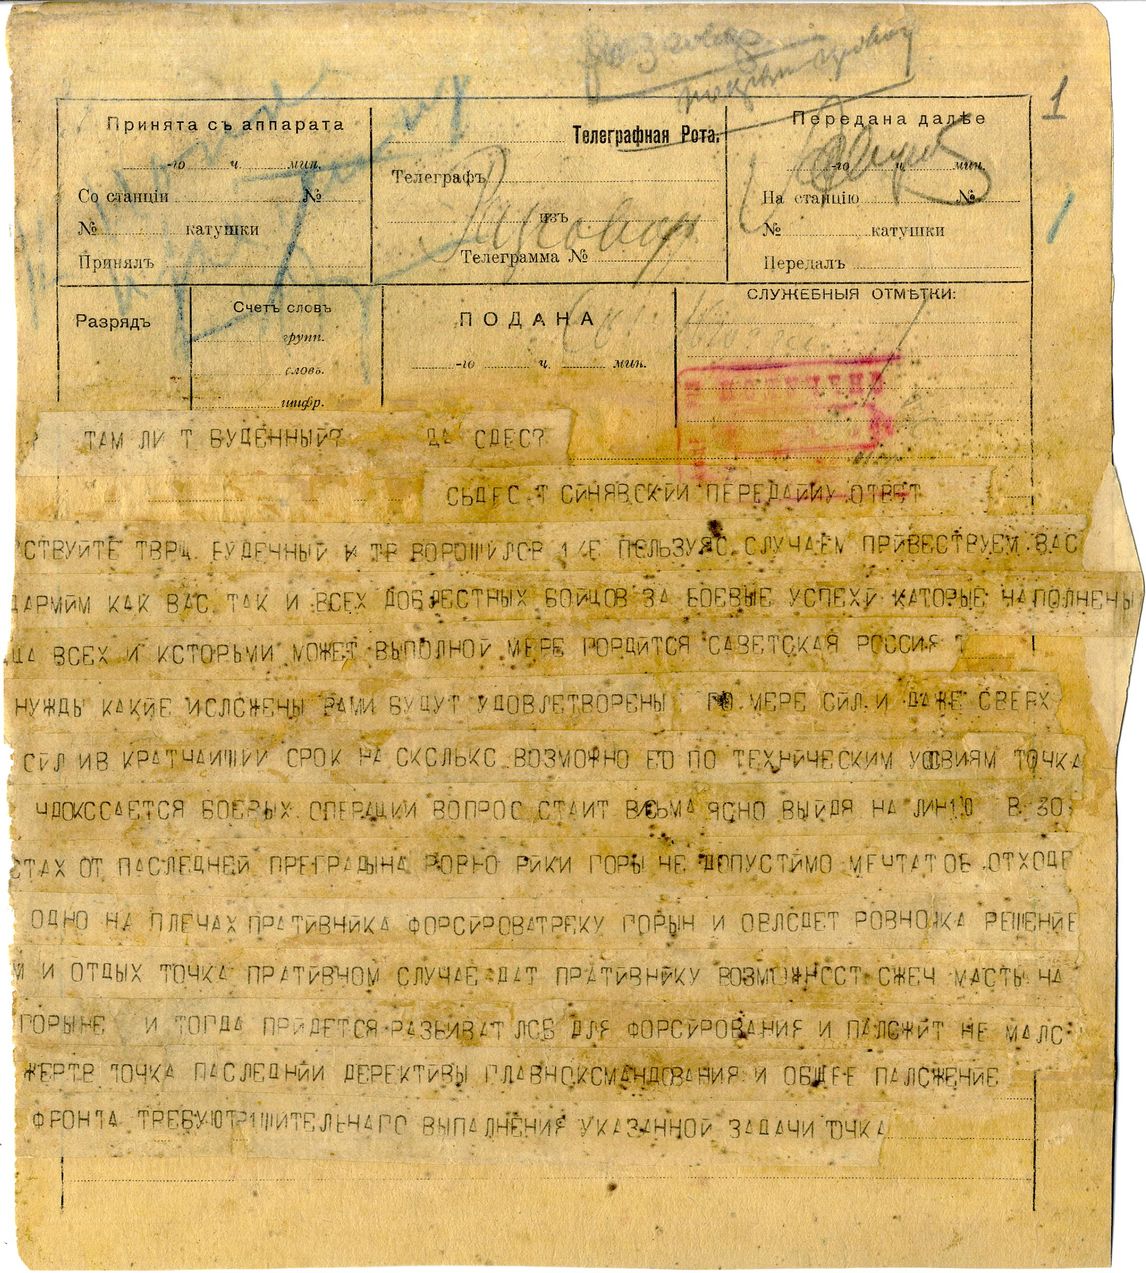 1
Принята съ аппарата
-го ч. мин.
Со станціи №
№ катушки
Принялъ
Телеграфная Рота.
Телеграфъ
изъ
Телеграмма №
Разговор
Передана далѣе
-го ч. мин.
На станцію №
№ катушки
Передалъ
Разрядъ
Счетъ словъ
групп.
словъ.
шифр.
ПОДАНА
-го ч. мин.
СЛУЖЕБНЫЯ ОТМѢТКИ:
ТАМ ЛИ Т БУДЕННЫЙ? ДА СДЕС?
СЬДЕС Т СИНЯВСКИЙ ПЕРЕДАЙИУ ОТВЕТ
СТВУЙТЕ ТВРЩ БУДЕННЫЙ И ТВ ВОРОШИЛОВ ПЕЛЬЗУЯС СЛУЧАЕМ ПРИВЕСТРУЕМ ВАС
ДАРМИМ КАК ВАС ТАК И ВСЕХ ДОБЛЕСТНЫХ БОЙЦОВ ЗА БОЕВЫЕ УСПЕХИ КАТОРЫЕ НАПОЛНЕНЫ
ЦА ВСЕХ И КСТОРЬМИ МОЖЕТ ВЫПОЛНОЙ МЕРЕ ГОРДИТСЯ САВЕТСКАЯ РОССИЯ Т
НУЖДЬ КАКИЕ ИСЛСЖЕНЫ ВАМИ БУДУТ УДОВЛЕТВОРЕНЫ ПО МЕРЕ СИЛ И ДАЖЕ СВЕРХ
СИЛ ИВ КРАТЧАИШИИ СРОК НА СКСЛЬКС ВОЗМОЖНО ЕТО ПО ТЕХНИЧЕСКИМ ТОЧКА
БОЕВЫХ ОПЕРАЦИИ ВОПРОС СТАИТ ВИСЬМА ЯСНО ВЫЙДЯ НА ЛИН1Ю В 30
СТАХ ОТ ПАСЛЕДНЕЙ ПРЕГРАДЫНА РОВНО РИКИ ГОРЫ НЕ ДОПУСТИМО МЕЧТАТ ОБ ОТХОДЕ
ОДНО НА ПЛЕЧАХ ПРАТИВНИКА ФОРСИРОВАТРЕКУ ГОРЫН И ОВЛСДЕТ РОВНО РЕШЕНИЕ
М И ОТДЫХ ТОЧКА ПРАТИВНОМ СЛУЧАЕ ДАТ ПРАТИВНИКУ ВОЗМОЖНССТ СЖЕЧ МАСТЫ НА
ГОРЫНЕ И ТОГДА ПРИДЕТСЯ РАЗВИВАТ ЛСБ ДЛЯ ФОРСИРОВАНИЯ И ПАЛСЖИТ НЕ МАЛС
ЖЕРТВ ТОЧКА ПАСЛЕДНИИ ДЕРЕКТИВЫ ГЛАВНОКСМАНДОВАНИЯ И ОБЩЕЕ ПАЛСЖЕНИЕ
ФРОНТА ТРЕБУЮТРIШИТЕЛЬНАГО ВЫПАЛНЕНИЯ УКАЗАННОЙ ЗАДАЧИ ТОЧКА